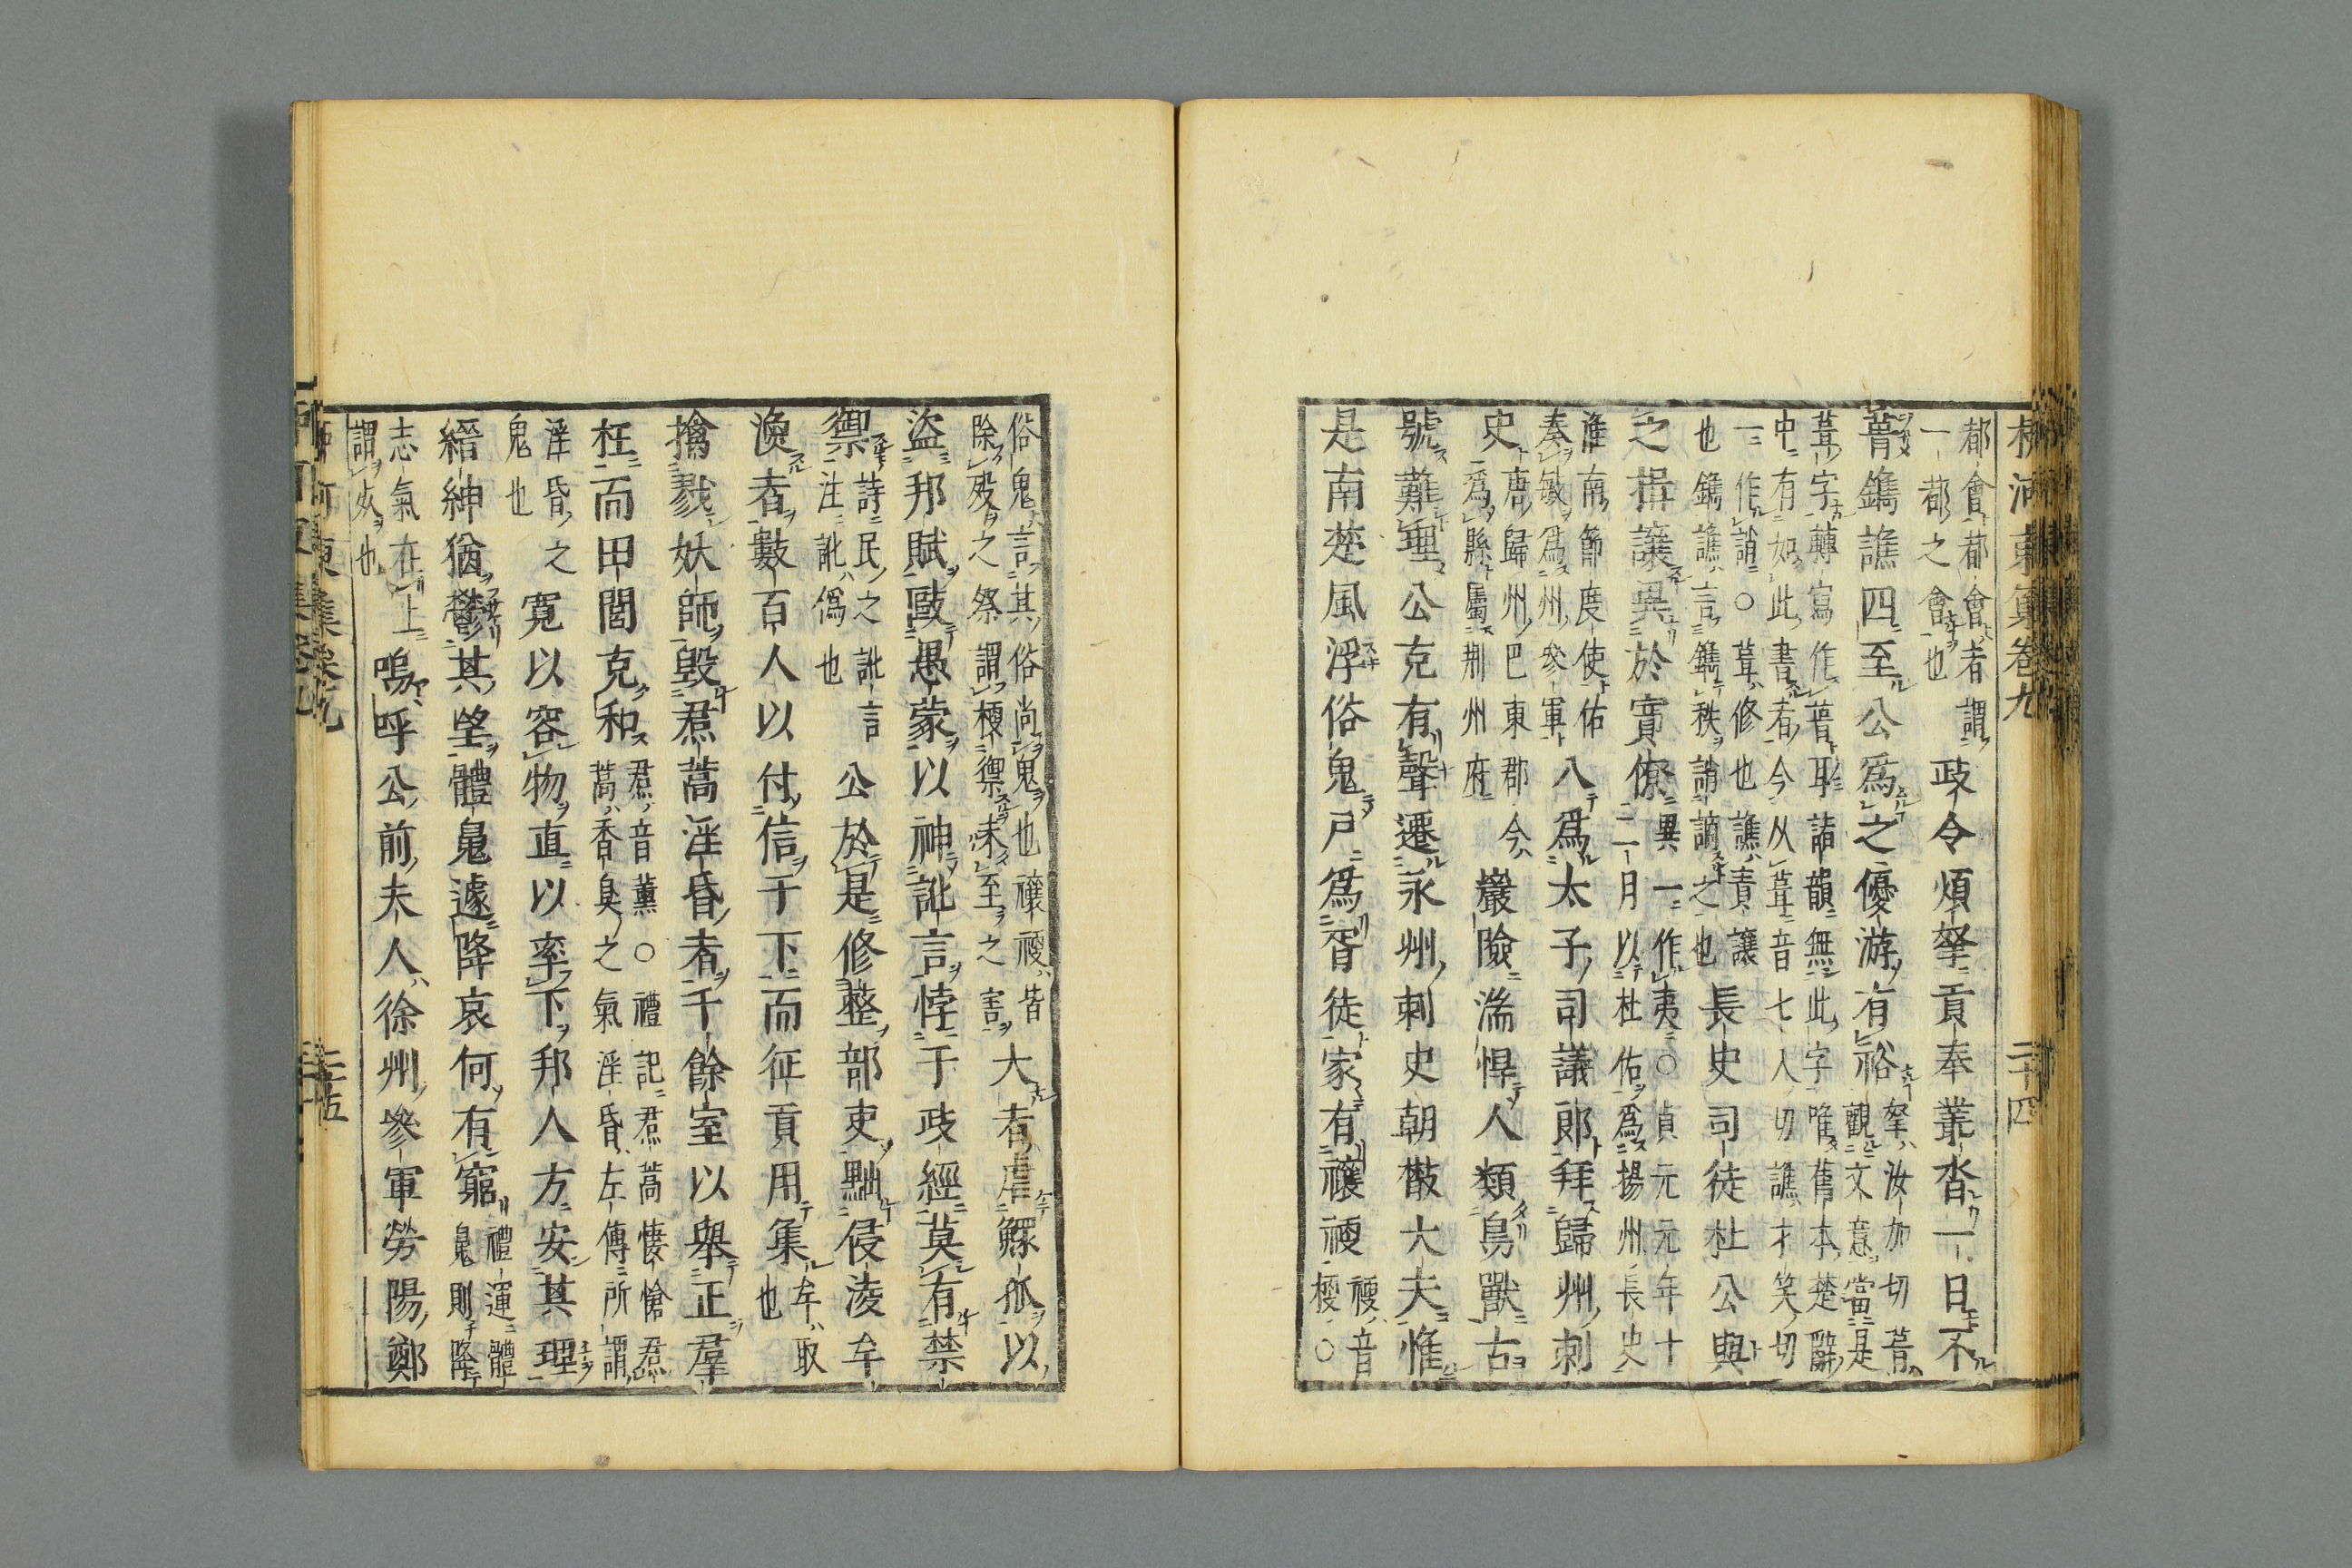 柳河東集卷九 二十四
都會都會者謂
一都之會也
政令煩拏貢奉叢沓一日不
葺鐫譙四至公爲之優游有裕
拏汝加切葺
觀文意當是
葺字轉寫作葺耳諸韻無此字唯舊本楚辭
中有如此書者今从葺音七入切譙才笑切
一作誚○葺修也譙責讓
也鐫譙言鐫秩誚謫之也
長史司徒杜公與
之揖讓異於賓僚
異一作夷○貞元元年十
二月以杜佑爲揚州長史
淮南節度使佑
奏敏爲州參軍
入爲太子司議郎拜歸州刺
史
唐歸州巴東郡今
爲縣屬荆州府
巖險湍悍人類鳥獸古
號難理公克有聲遷永州刺史朝散大夫惟
是南楚風浮俗鬼戸爲胥徒家有禳祲
祲音
祲○
俗鬼言其俗尚鬼也禳祲皆
除殃之祭謂梗禦未至之害
大者虐鰥孤以
盜邦賦毆愚蒙以神訛言悖于政經莫有禁
禦
詩民之訛言
注訛僞也
公於是修整部吏黜侵淩牟
漁者數百人以付信于下而征貢用集
牟取
也
擒戮妖師毀焄蒿淫昏者千餘室以舉正羣
枉而田閭克和
焄音薰○禮記焄蒿悽愴焄
蒿香臭之氣淫昏左傳所謂
淫昏之
鬼也
寬以容物直以率下邦人方安其理
縉紳猶鬱其望體魄遽降哀何有窮
禮運體
魄則降
志氣在上
謂死也
嗚呼公前夫人徐州參軍勞陽鄭
河東集卷九 二十五